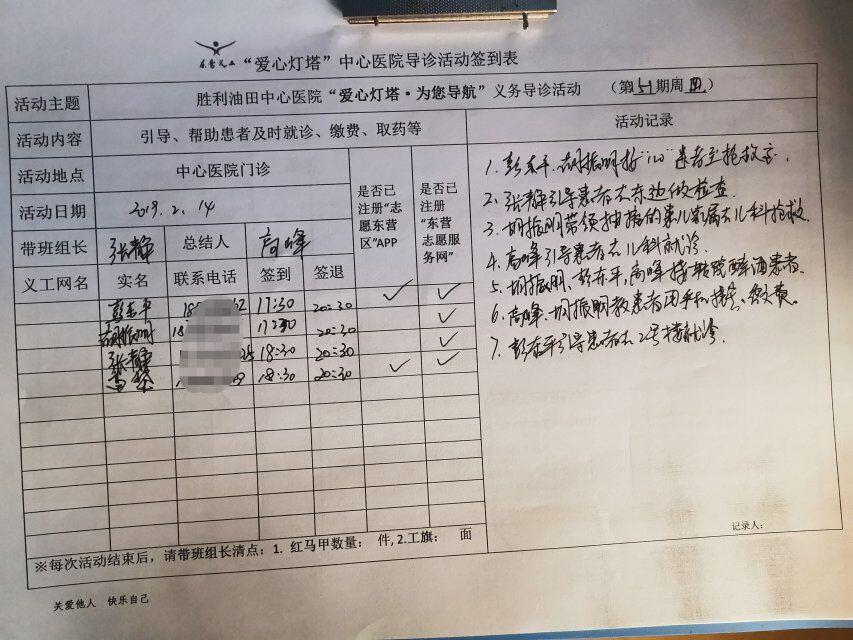 东营义工 “爱心灯塔” 中心医院导诊活动签到表
活动主题 胜利油田中心医院“爱心灯塔·为您导航”义务导诊活动 (第51期周四)
活动内容 引导、帮助患者及时就诊、缴费、取药等 活动记录
活动地点 中心医院门诊
是否已注册“志愿东营区”APP
是否已注册“东营志愿服务网”
活动日期 2019.2.14
带班组长 张静 总结人 高峰
义工网名 实名 联系电话 签到 签退
彭东平 17:30 20:30 ✓ ✓
胡振明 17:30 20:30 ✓
张静 18:30 20:30 ✓
高峰 18:30 20:30 ✓ ✓
1. 彭东平、胡振明接“120”患者至抢救室.
2. 张静引导患者去东边做检查.
3. 胡振明带领抽搐的患儿家属去儿科抢救
4. 高峰引导患者去儿科就诊.
5. 胡振明、彭东平、高峰接转院醉酒患者.
6. 高峰、胡振明教患者用手机挂号、缴费.
7. 彭东平引导患者去2号楼就诊.
记录人:
※每次活动结束后,请带班组长清点:1. 红马甲数量: 件,2.工旗: 面
关爱他人 快乐自己